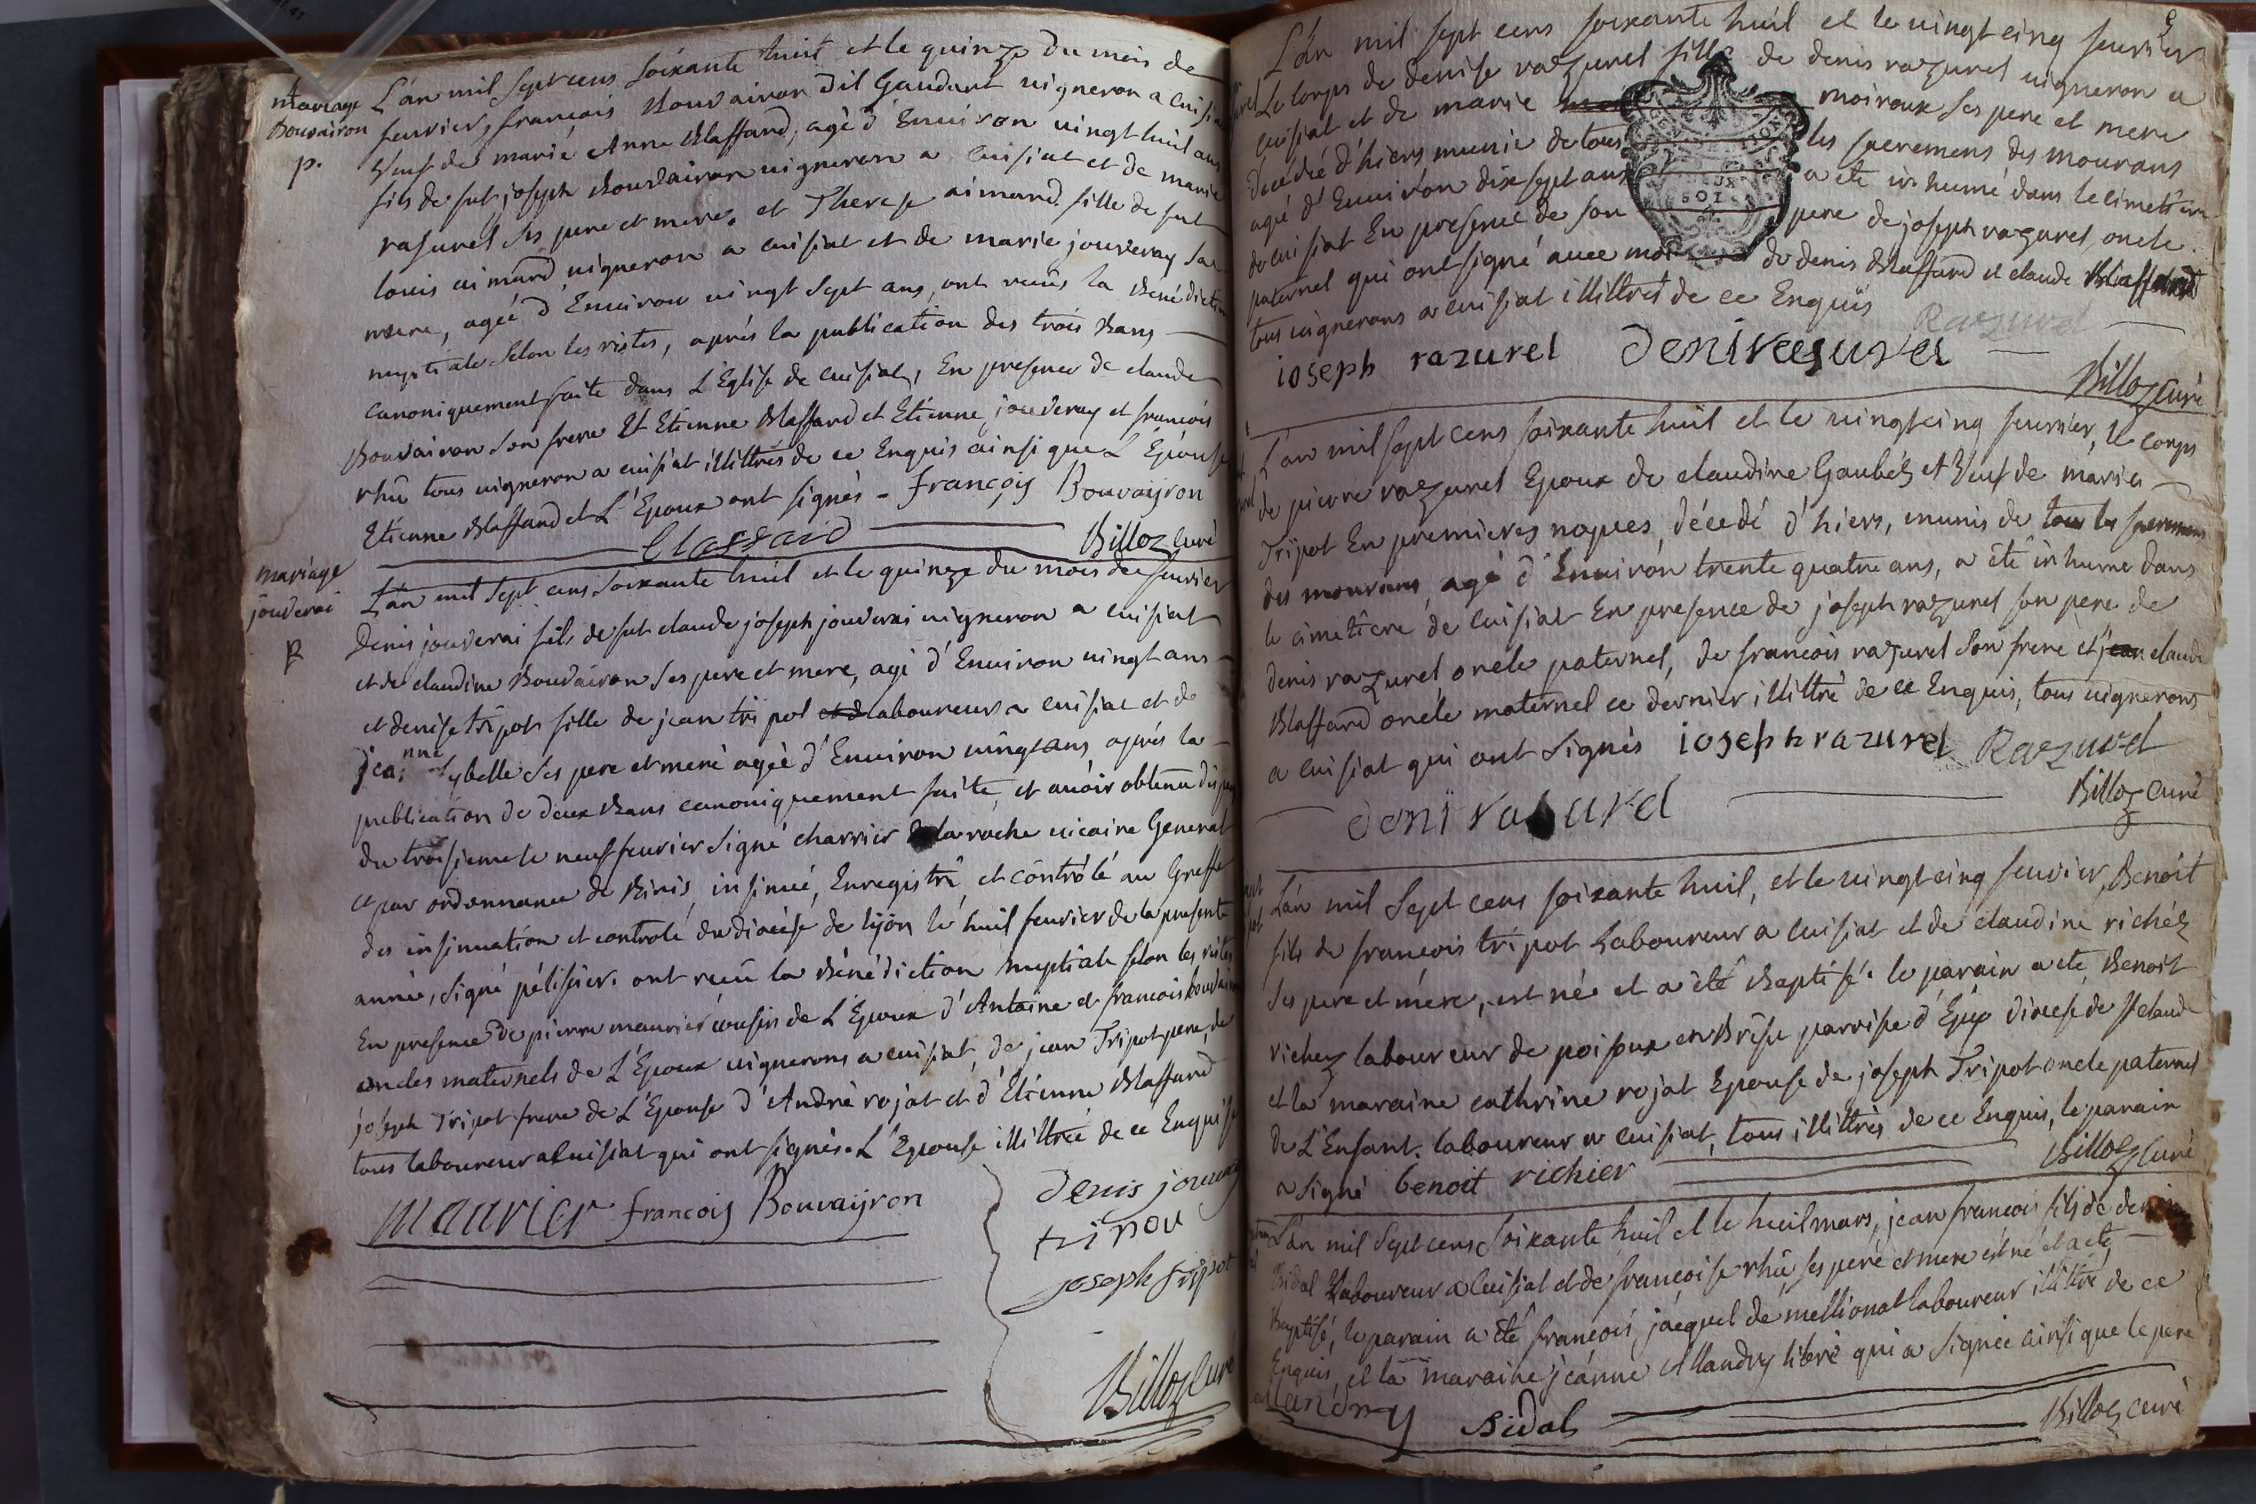 mariage
Bouvairon
p.
L'an mil sept cens soixante huit et le quinze du mois de
feuvrier, françois Bouvairon dit Gaudart uigneron a cuisiat
Veuf de marie Anne Blaffard, agé d'Enuiron uingt huit ans
fils de fut joseph Bouvairon uigneron a cuisiat et de marie
rasurel ses pere et mere, et Therese aimard fille de fut
louis aimard uigneron a cuisiat et de marie jouveray sa
mere, agée d'Enuiron uingt sept ans, ont reçus la Benédiction
nuptiale selon les rittes, aprés la publication des trois Bans
canoniquement faite dans L'Eglise de cuisiat, En presence de claude
Bouvairon son frere Et Etienne Blaffard et Etienne jouveray et francois
rhû tous uigneron a cuisiat illittres de ce Enquis ainsi que L'Epouse
Etienne Blaffard et L'Epoux ont signés - françois Bouvaijron
Blaffard Billoz curé
mariage
jouverai
p
L'an mil sept cens soixante huit et le quinze du mois de feuvrier
Denis jouverai fils de fut claude joseph jouverai uigneron a cuisiat
et de claudine Bouvairon ses pere et mere, agé d'Enuiron uingt ans
et denise tripot fille de jean tripot et d laboureur a cuisiat et de
jeanne sybelle ses pere et mere agée d'Enuiron uingt ans aprés la
publication de deux Bans canoniquement faite, et auoir obtenu dispense
du troisieme le neuf feuvrier signé charrier de la roche uicaire General
et par ordonnance de Binis, insinué, Enregistré et contrôlé au Greffe
des insinuation et contrôle du diocése de lijon le huit feuvrier de la presente
année, signé pélissier. ont reçu la Bénédiction nuptiale selon les rittes
En presence de pierre maurier cousin de L'Epoux d'Antoine et francois bouvairon
oncles maternels de L'Epoux uignerons a cuisiat, de jean Tripot pere, de
joseph Tripot frere de L'Epouse d'André rojat et d'Etienne Blaffard
tous laboureur a cuisiat qui ont signés. L'Epouse illittrée de ce Enquise
maurier françois Bouvaijron
Denis jouveray
tripou
joseph tripot
Billoz curé
L'an mil sept cens soixante huit et le uingt cinq feuvrier
Le corps de denise razurel fille de denis razurel uigneron a
cuisiat et de marie moiroux ses pere et mere
decédée d'hiers munie de tous les sacremens des mourans
agé d'Enuiron dix sept ans a eté inhumé dans le cimetiere
de cuisiat En presence de son pere de joseph razurel, oncle
paternel qui ont signé auec moi de denis Blaffard et claude Blaffard
tous uignerons a cuisiat illittres de ce Enquis Razurel
ioseph razurel Deni rasurel
Billoz curé
L'an mil sept cens soixante huit et le uingt cinq feuvrier, le corps
de pierre razurel Epoux de claudine Gaubéz et Veuf de marie
Tripot En premieres noçes, décedé d'hiers, munis de tous les sacremens
des mourans, agé d'Enuirón trente quatre ans, a été inhumé dans
le cimetiere de cuisiat En presence de joseph razurel son pere de
denis razurel oncle paternel, de francois razurel son frere et jean claude
Blaffard oncle maternel ce dernier illittré de ce Enquis, tous uignerons
a cuisiat qui ont signés ioseph razurel Razurel
Deni rasurel Billoz curé
L'an mil sept cens soixante huit, et le uingt cinq feuvier, Benoit
fils de francois tripot Laboureur a cuisiat et de claudine richéz
ses pere et mere, est né et a été Baptisé. le parain a eté Benoit
richez laboureur de poisoux en Brêse parroise d'Epy diocese de St claude
et la maraine cathrine rojat Epouse de joseph Tripot oncle paternel
de L'Enfant. laboureur a cuisiat, tous illittrés de ce Enquis, le parain
a signé benoit richier Billoz curé
L'an mil sept cens soixante huit et le huit mars, jean francois fils de denis
Bidal Laboureur a Cuisiat et de françoise rhû, ses pere et mere est né et a eté
Baptisé, le parain a été francois jacquet de mellionat laboureur illittré de ce
Enquis, et la maraine jeanne Allandry libre qui a signée ainsi que le pere
allandry Bidal Billoz curé